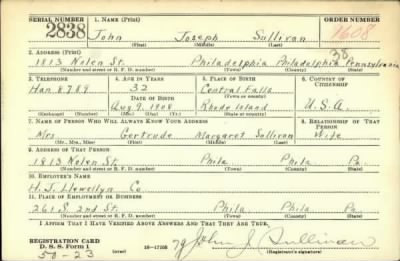 SERIAL NUMBER 1. NAME (Print) ORDER NUMBER
2838 John Joseph Sullivan 1608
(First) (Middle) (Last)
2. ADDRESS (Print) 38
1813 Nolen St. Philadelphia Philadelphia Pennsylvania
(Number and street or R. F. D. number) (Town) (County) (State)
3. TELEPHONE 4. AGE IN YEARS 5. PLACE OF BIRTH 6. COUNTRY OF CITIZENSHIP
Han 8789 32 Central Falls
DATE OF BIRTH (Town or county)
Aug 9, 1908 Rhode Island U.S.A.
(Exchange) (Number) (Mo.) (Day) (Yr.) (State or country)
7. NAME OF PERSON WHO WILL ALWAYS KNOW YOUR ADDRESS 8. RELATIONSHIP OF THAT PERSON
Mrs Gertrude Margaret Sullivan Wife
(Mr., Mrs., Miss) (First) (Middle) (Last)
9. ADDRESS OF THAT PERSON
1813 Nolen St. Phila Phila Pa.
(Number and street or R. F. D. number) (Town) (County) (State)
10. EMPLOYER'S NAME
H. J. Llewellyn Co
11. PLACE OF EMPLOYMENT OR BUSINESS
261 S. 2nd St. Phila Phila Pa.
(Number and street or R. F. D. number) (Town) (County) (State)
I AFFIRM THAT I HAVE VERIFIED ABOVE ANSWERS AND THAT THEY ARE TRUE.
REGISTRATION CARD
D. S. S. Form 1 (over) 16—17105 John J. Sullivan
50-23 (Registrant's signature)